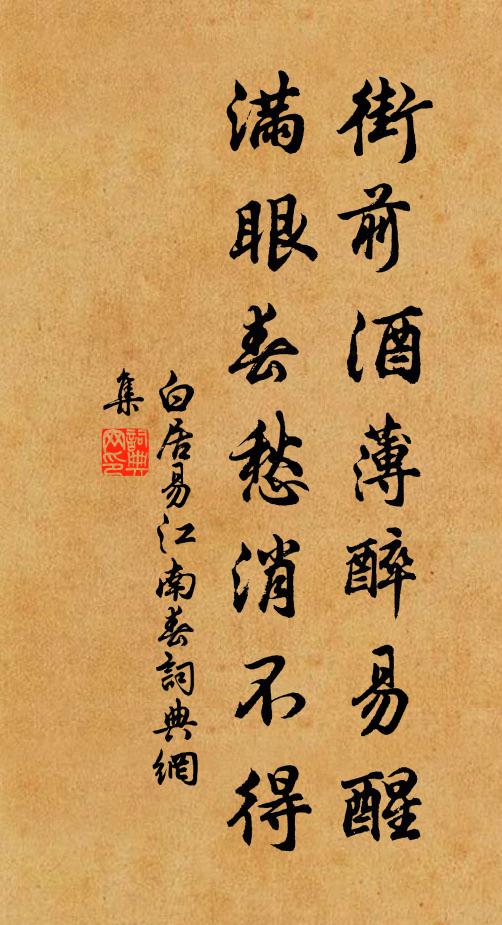 街前酒薄醉易醒
滿眼春愁消不得
白居易江南春詞典網
集
詞典網印